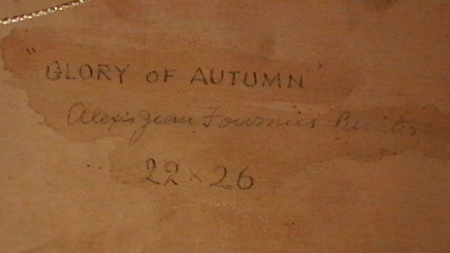 "GLORY OF AUTUMN
Alexis Jean Fournier Painter
22 x 26